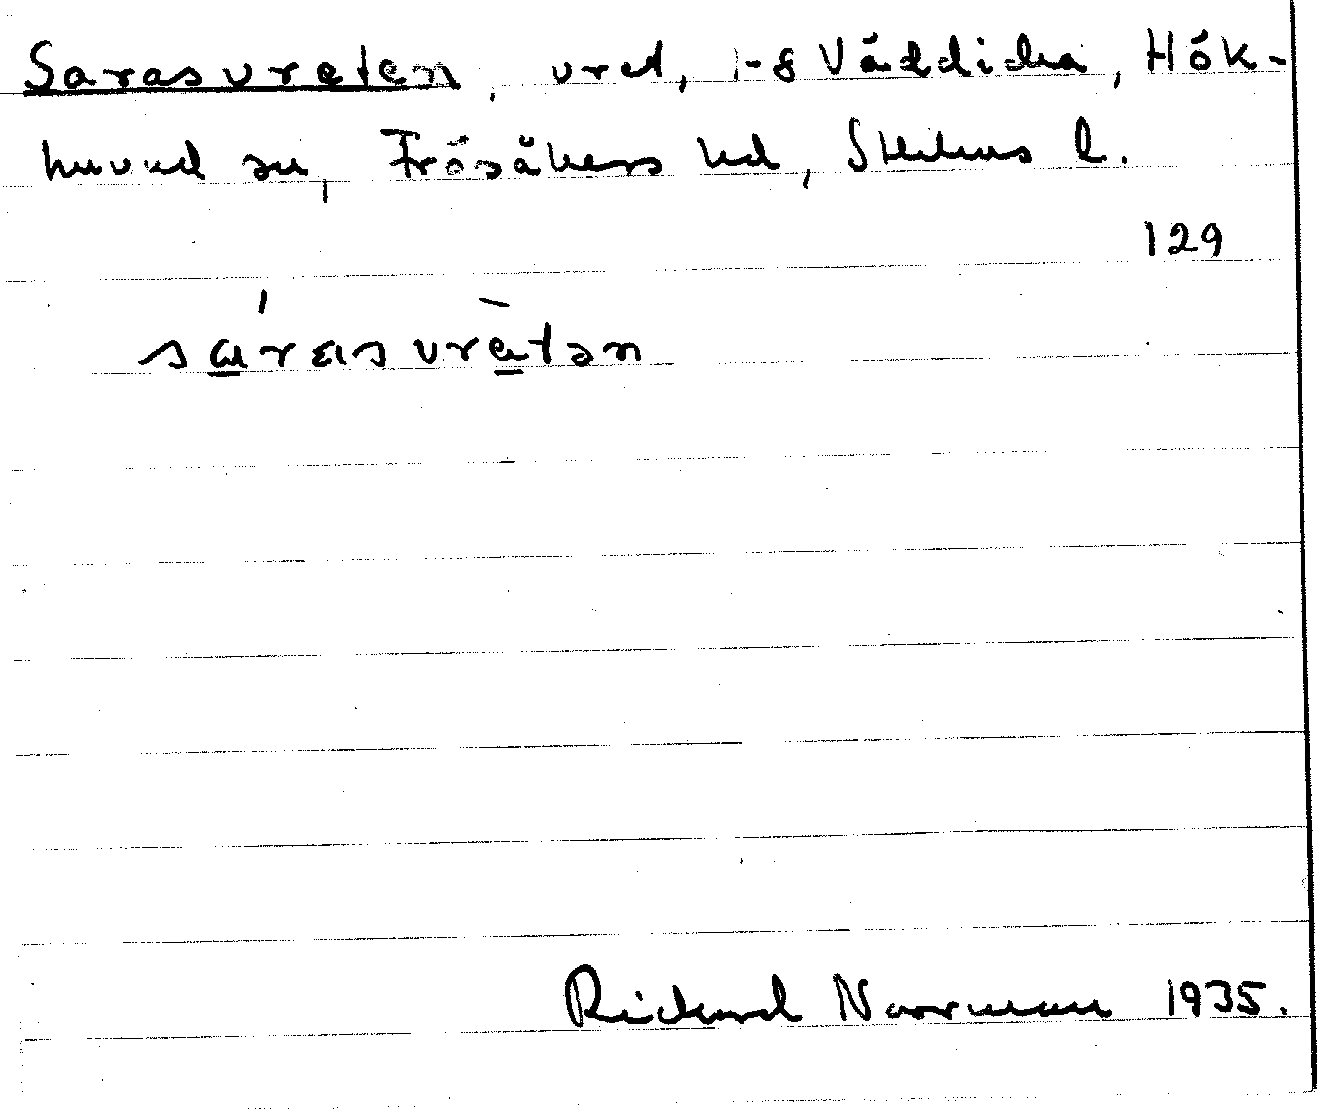 Sarasvreten, vret, 1-8 Väddicka, Hök-
huvud sn, Frösåkers hd, Sthlms l.
129
sárasvrètən
Rickard Norrman 1935.